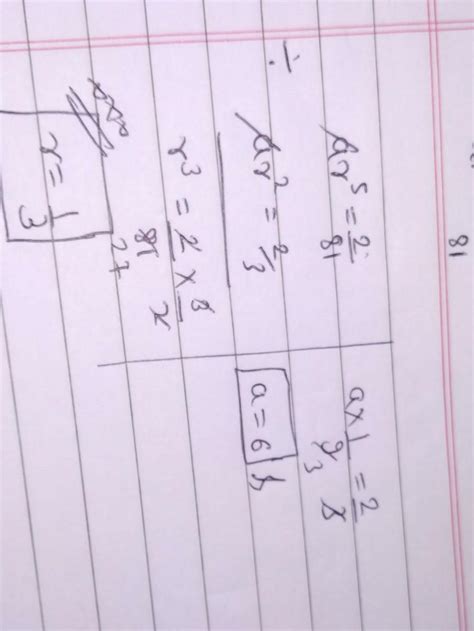 81
ar⁵ = 2/81
÷
ar² = 2/3
r³ = 2/81 × 3/2
27
r = 1/3
a × 1/9 = 2/3
3
a = 6